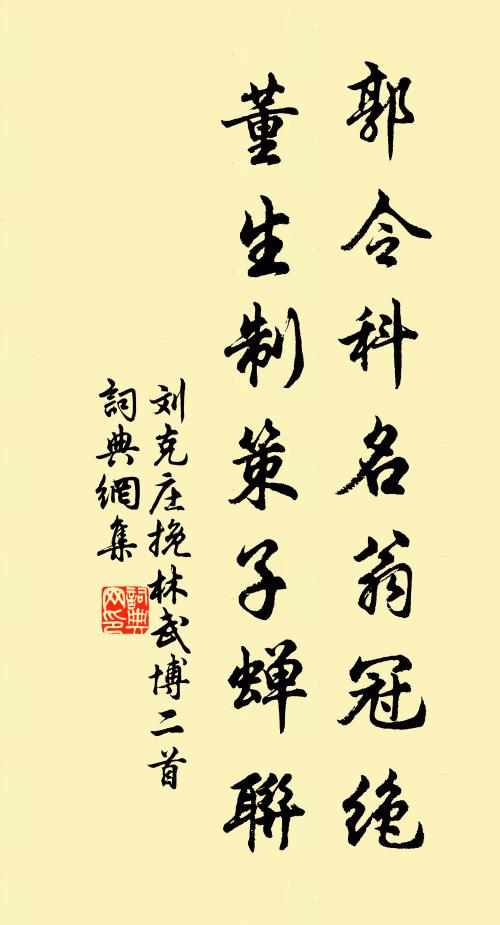 郭令科名翁冠绝
董生制策子蝉聯
刘克庄挽林武博二首
詞典網集
詞典网印